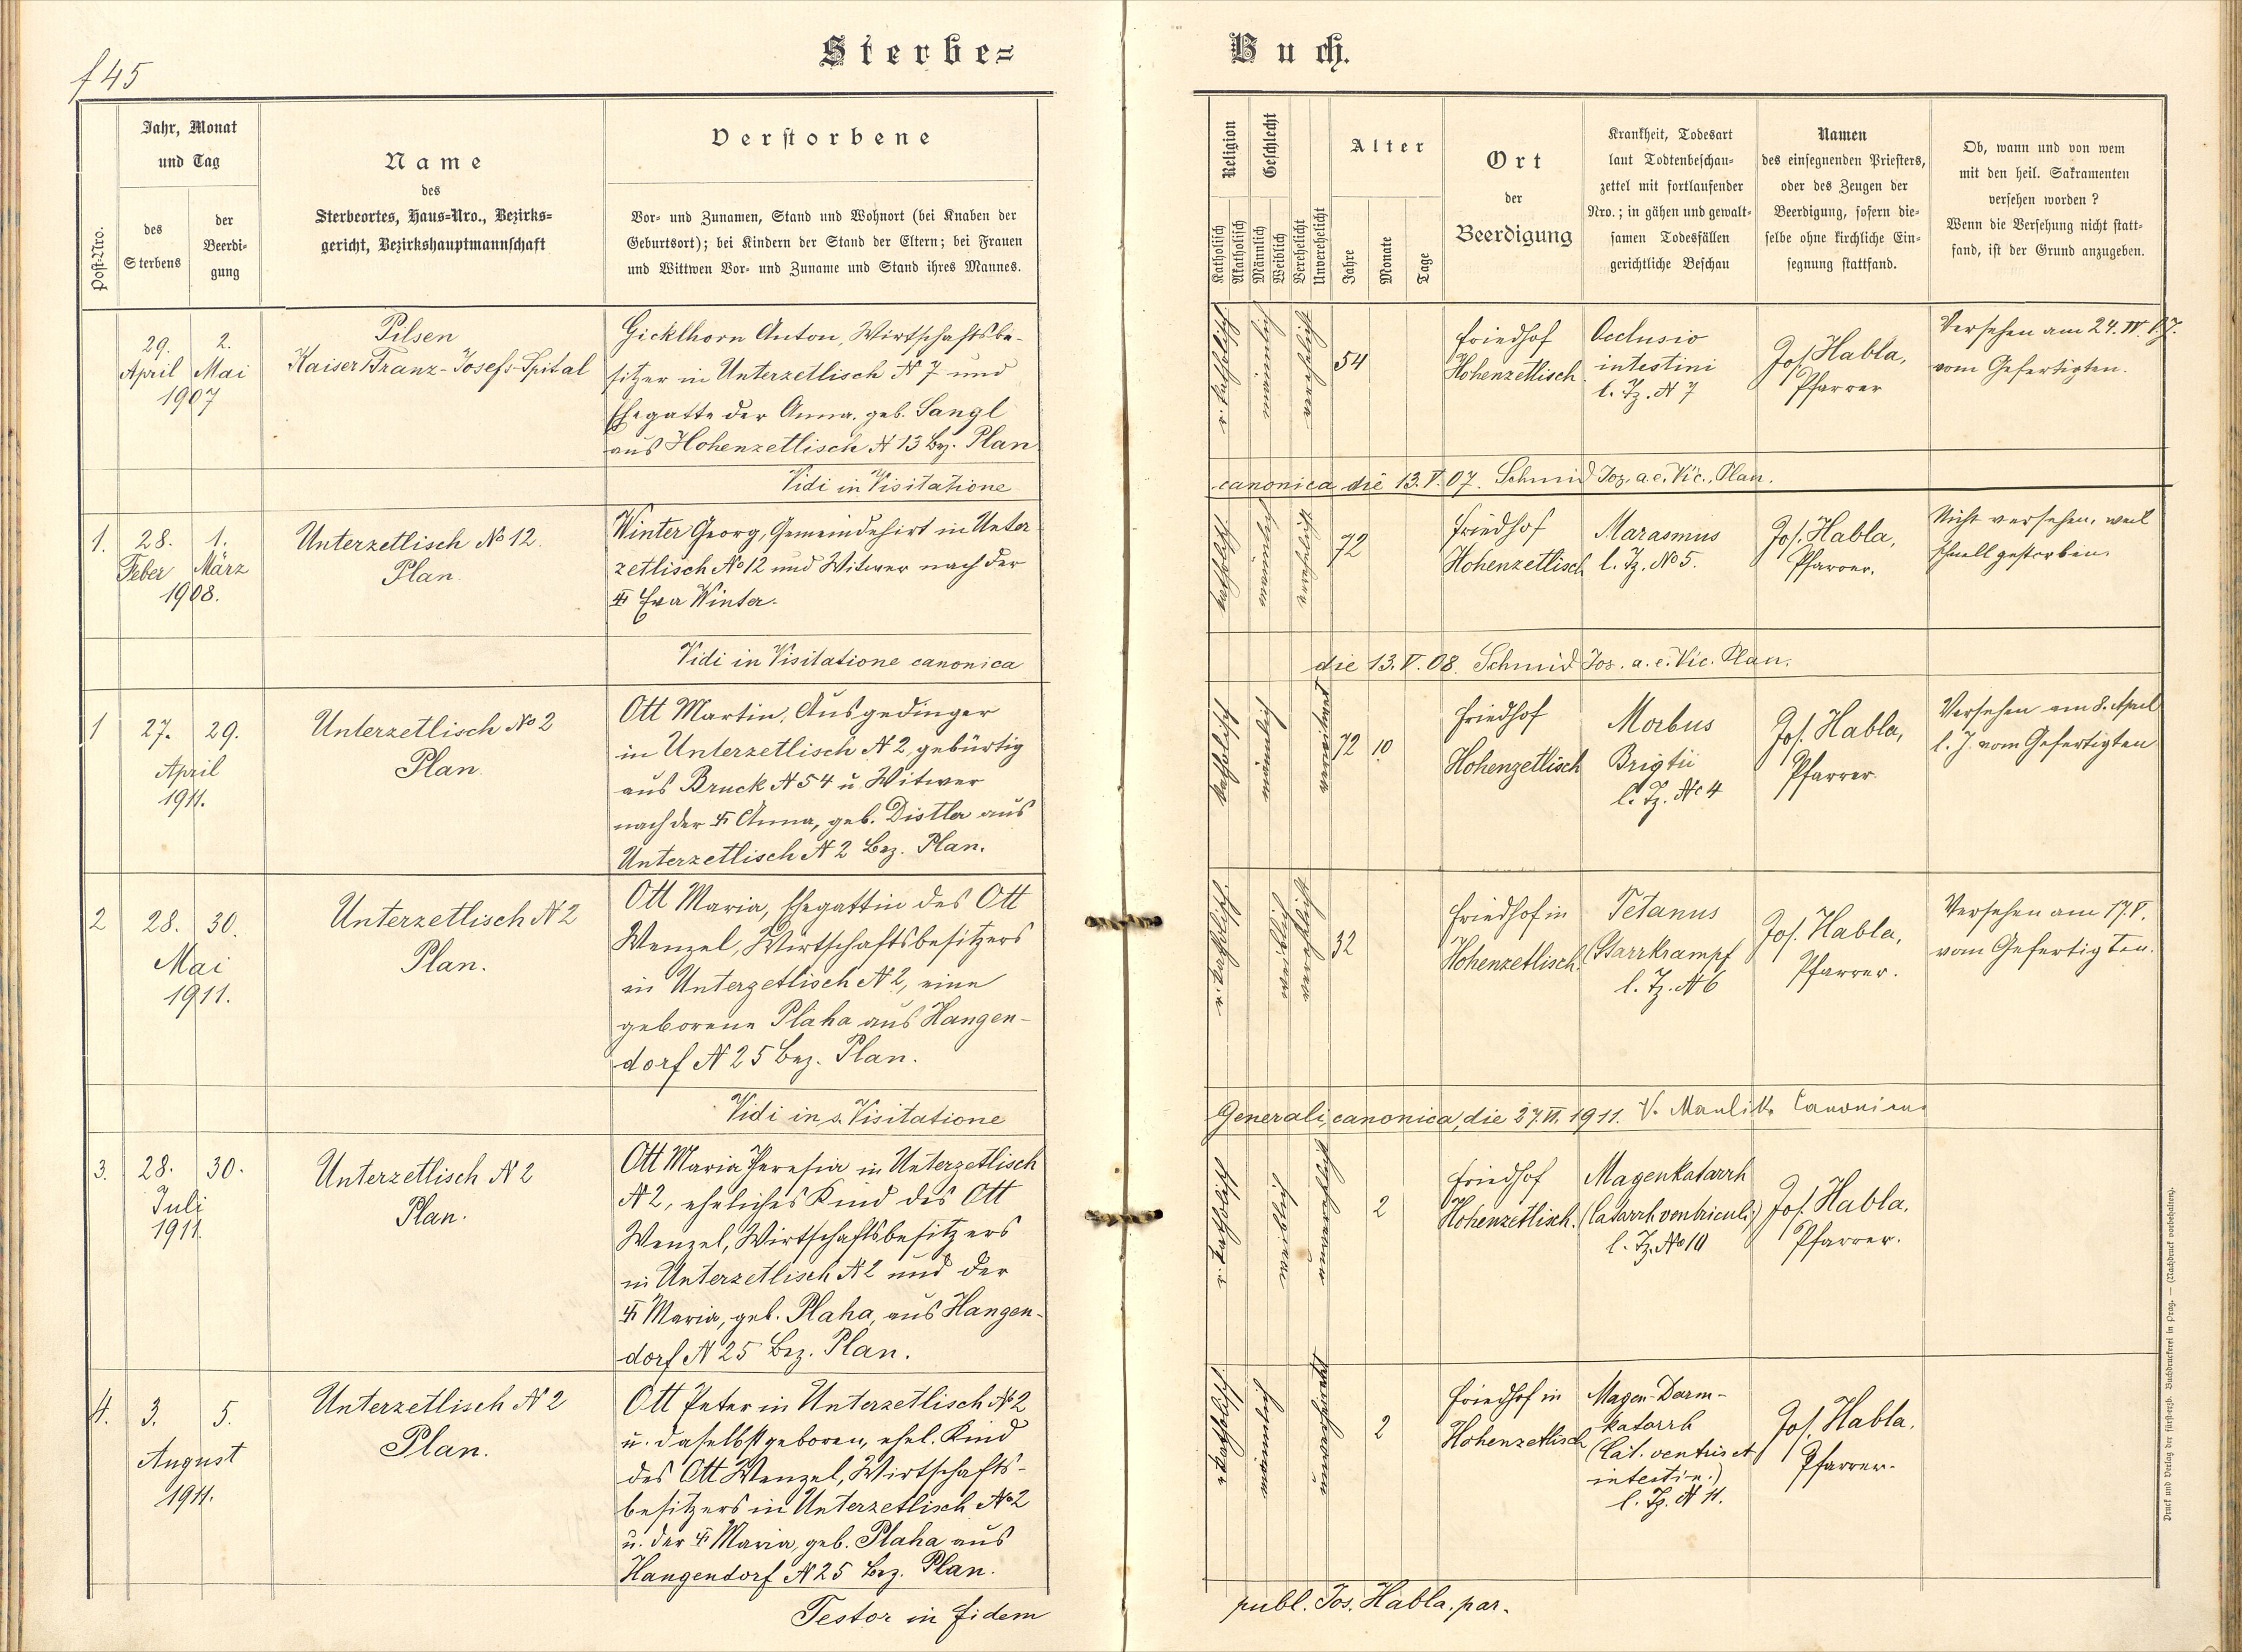 f 45
Sterbe=
Buch.
Post-Nro.
Jahr, Monat
und Tag
des
Sterbens
der
Beerdi-
gung
Name
des
Sterbeortes, Haus=Nro., Bezirks=
gericht, Bezirkshauptmannschaft
Verstorbene
Vor- und Zunamen, Stand und Wohnort (bei Knaben der
Geburtsort); bei Kindern der Stand der Eltern; bei Frauen
und Wittwen Vor- und Zuname und Stand ihres Mannes.
Religion
Katholisch
Akatholisch
Geschlecht
Männlich
Weiblich
Verehelicht
Unverehelicht
Alter
Jahre
Monate
Tage
Ort
der
Beerdigung
Krankheit, Todesart
laut Todtenbeschau-
zettel mit fortlaufender
Nro.; in gähen und gewalt-
samen Todesfällen
gerichtliche Beschau
Namen
des einsegnenden Priesters,
oder des Zeugen der
Beerdigung, sofern die-
selbe ohne kirchliche Ein-
segnung stattfand.
Ob, wann und von wem
mit den heil. Sakramenten
versehen worden?
Wenn die Versehung nicht statt-
fand, ist der Grund anzugeben.
29. 2.
April Mai
1907
Pilsen
Kaiser Franz-Josefs-Spital
Gicklhorn Anton, Wirtschaftsbe-
sitzer in Unterzetlisch N 7 und
Ehegatte der Anna, geb. Sangl
aus Hohenzetlisch N 13 Bez. Plan
r. katholisch
männlich
verehelicht
54
Friedhof
Hohenzetlisch
Occlusio
intestini
l. Tz. N 7
Jos. Habla,
Pfarrer
Versehen am 24. IV. l. J.
vom Gefertigten.
Vidi in Visitatione
canonica die 13. V. 07. Schmid Jos. a. e. Vic. Plan.
1. 28. 1.
Feber März
1908.
Unterzetlisch No 12.
Plan.
Winter Georg, Gemeindehirt in Unter
zetlisch No 12 und Witwer nach der
✠ Eva Winter.
katholisch
männlich
verehelicht
72
Friedhof
Hohenzetlisch
Marasmus
l. Tz. No 5.
Jos. Habla,
Pfarrer.
Nicht versehen, weil
schnell gestorben.
Vidi in Visitatione canonica
die 13. V. 08. Schmid Jos. a. e. Vic. Plan.
1 27. 29.
April
1911.
Unterzetlisch No 2
Plan.
Ott Martin, Ausgedinger
in Unterzetlisch N 2, gebürtig
aus Bruck N 54 u. Witwer
nach der ✠ Anna, geb. Distler aus
Unterzetlisch N 2 Bez. Plan.
katholisch
männlich
verwitwet
72 10
Friedhof
Hohenzetlisch
Morbus
Brigtii
l. Tz. No 4
Jos. Habla,
Pfarrer.
Versehen am 8. April
l. J. vom Gefertigten
2 28. 30.
Mai
1911.
Unterzetlisch N 2
Plan.
Ott Maria, Ehegattin des Ott
Wenzel, Wirtschaftsbesitzers
in Unterzetlisch N 2, eine
geborene Plaha aus Hangen-
dorf N 25 Bez. Plan.
r. katholisch.
weiblich
verehelicht
32
Friedhof in
Hohenzetlisch.
Tetanus
(Starrkrampf
l. Tz. N 6
Jos. Habla,
Pfarrer.
Versehen am 17. V.
vom Gefertigten.
Vidi in s. Visitatione
Generali, canonica, die 27. VI. 1911. V. Maulik Canonicus
3. 28. 30.
Juli
1911.
Unterzetlisch N 2
Plan.
Ott Maria Theresia in Unterzetlisch
N 2, eheliches Kind des Ott
Wenzel, Wirtschaftsbesitzers
in Unterzetlisch N 2 und der
✠ Maria, geb. Plaha, aus Hangen-
dorf N 25 Bez. Plan.
r. katholisch
weiblich
unverehelicht
2
Friedhof
Hohenzetlisch.
Magenkatarrh
(Catarrh ventriculi)
l. Tz. No 10
Jos. Habla,
Pfarrer.
4. 3. 5.
August
1911.
Unterzetlisch N 2
Plan.
Ott Peter in Unterzetlisch No 2
u. daselbst geboren, ehel. Kind
des Ott Wenzel, Wirtschafts-
besitzers in Unterzetlisch No 2
u. der ✠ Maria, geb. Plaha aus
Hangendorf N 25 Bez. Plan.
r. katholisch.
männlich
unverheiratet
2
Friedhof in
Hohenzetlisch
Magen-Darm-
katarrh
(Cat. ventris et
intestin.)
l. Tz. N 11.
Jos. Habla,
Pfarrer.
Testor in fidem
publ. Jos. Habla, par.
Druck und Verlag der fürsterzb. Buchdruckerei in Prag. — (Nachdruck vorbehalten).